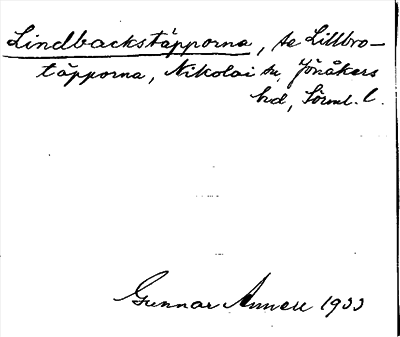 Lindbackstäpporna, se Lillbro-
täpporna, Nikolai sn, Jönåkers
hd, Sörml. l.
Gunnar Annell 1933